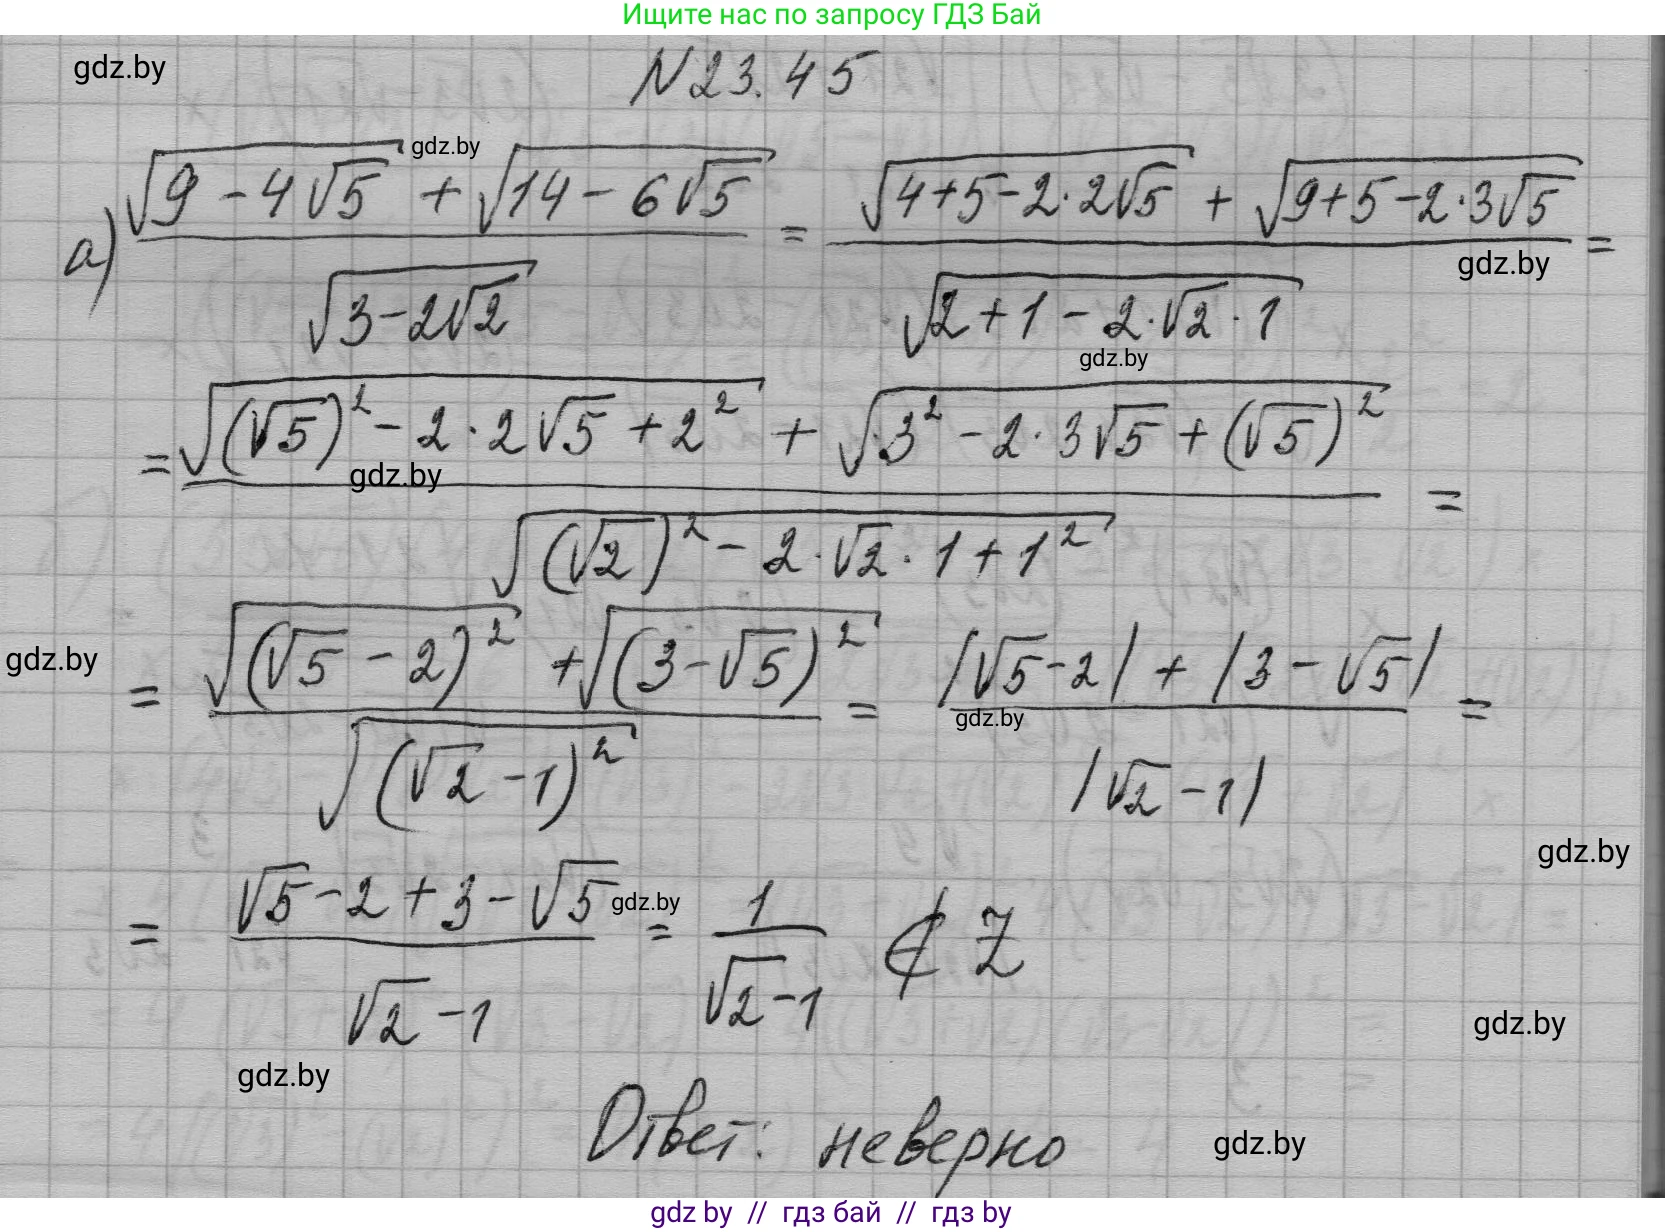 Ищите нас по запросу ГДЗ Бай
gdz.by
N 23.45
gdz.by
а) (√(9 - 4√5) + √(14 - 6√5)) / √(3 - 2√2) = (√(4 + 5 - 2·2√5) + √(9 + 5 - 2·3√5)) / √(2 + 1 - 2·√2·1) =
gdz.by
gdz.by
= (√((√5)² - 2·2√5 + 2²) + √(3² - 2·3√5 + (√5)²)) / √((√2)² - 2·√2·1 + 1²) =
gdz.by
gdz.by
= (√((√5 - 2)²) + √((3 - √5)²)) / √((√2 - 1)²) = (|√5 - 2| + |3 - √5|) / |√2 - 1| =
gdz.by
gdz.by
= (√5 - 2 + 3 - √5) / (√2 - 1) = 1 / (√2 - 1) ∉ Z
gdz.by
gdz.by
gdz.by
Ответ: неверно
gdz.by
gdz by // гдз бай // гдз by